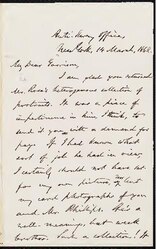 Anti-Slavery Office,
New York, 14 March, 1864.
My Dear Garrison,
I am glad you returned
Mr. heterogeneous collection of
portraits. It was a piece of
impertinence in him, I think, to
send it you with a demand for
page. If I had known what
sort of job he had in view
I certainly should not have let
for my own picture, nor
my card photographs of you
and Mr. Phillips. This is
well meaning, but weak
brother. Such a collection! It